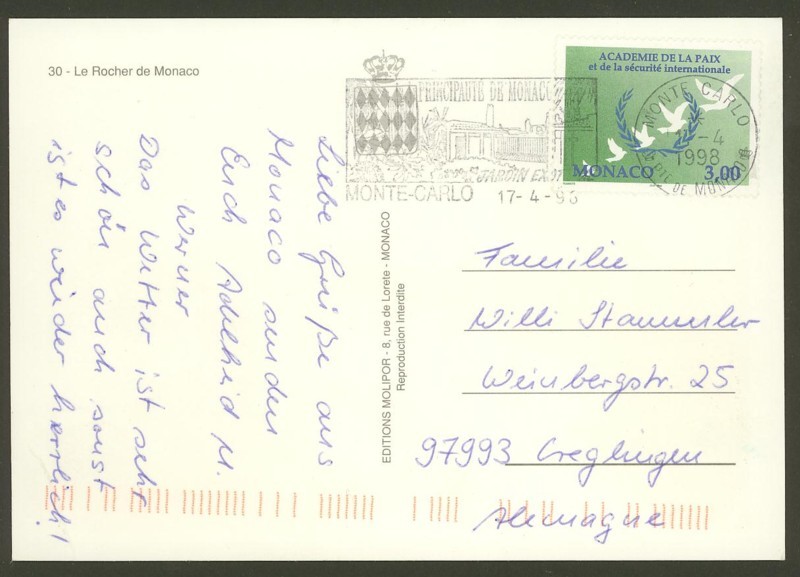 30 - Le Rocher de Monaco
Liebe Grüße aus
Monaco senden
Euch Adelheid u.
Werner
Das Wetter ist sehr
schön auch sonst
ist es wieder herrlich!
EDITIONS MOLIPOR - 8, rue de Lorete - MONACO
Reproduction Interdite
PRINCIPAUTÉ DE MONACO
JARDIN EXOT
MONTE-CARLO 17-4-98
ACADEMIE DE LA PAIX
et de la sécurité internationale
MONACO 3,00
MONTE CARLO
17-4
1998
PTE DE MONACO
Familie
Willi Stammler
Weinbergstr. 25
97993 Creglingen
Allemagne